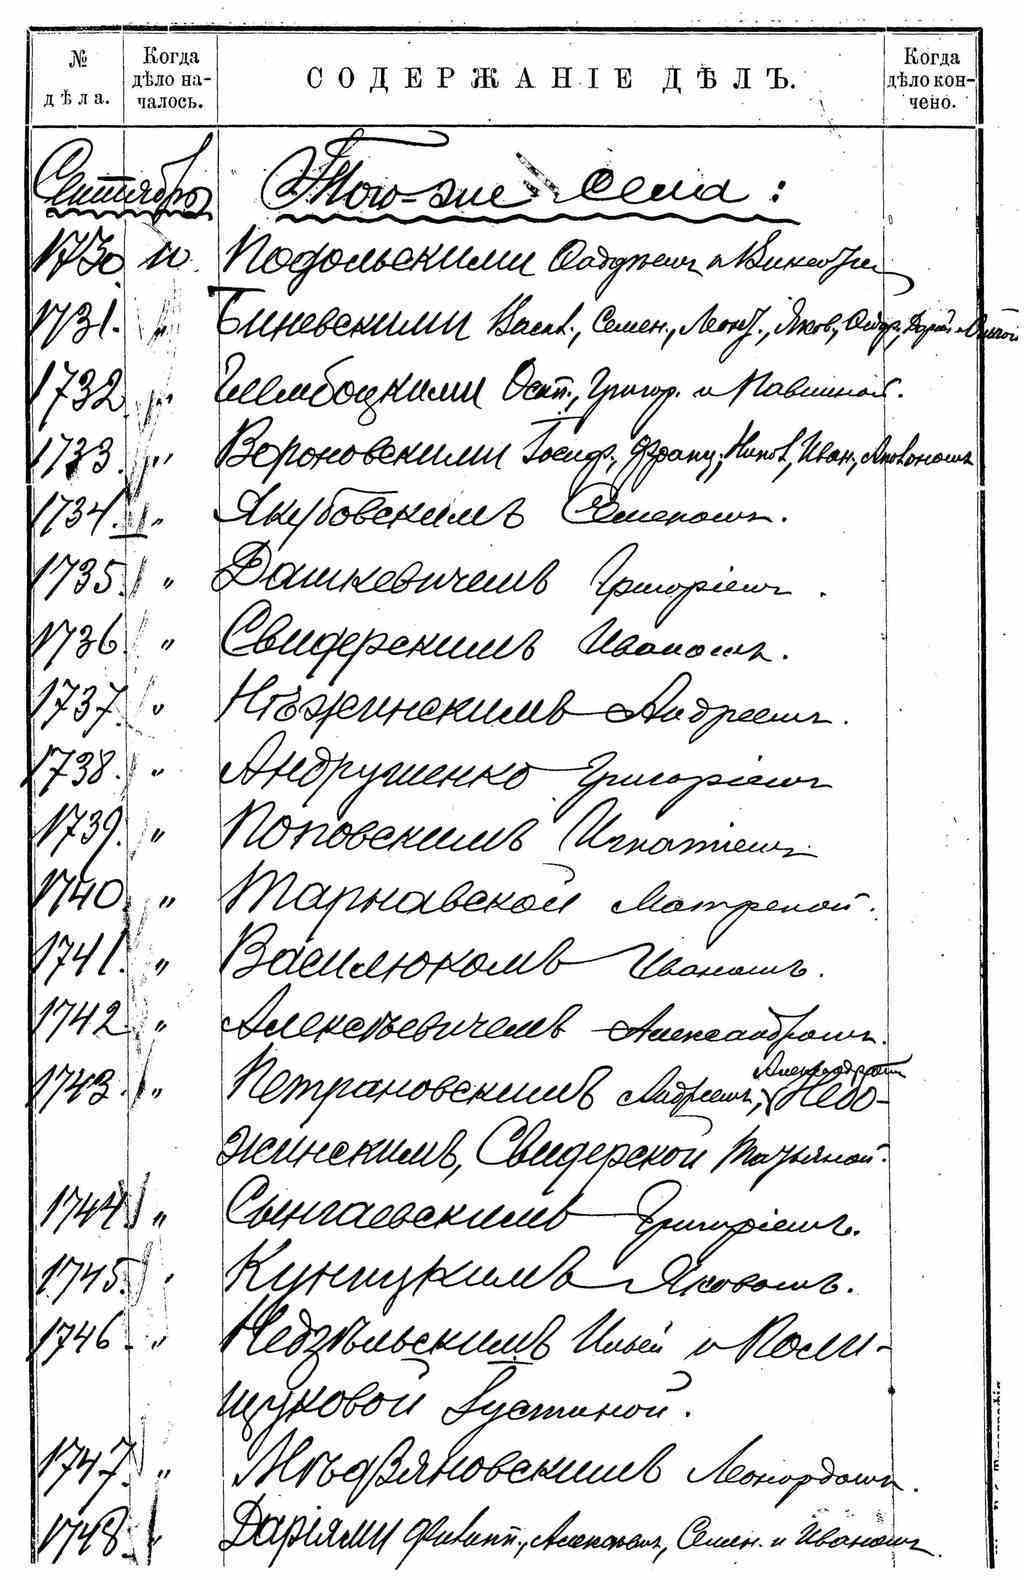 № дѣла. Когда дѣло началось. СОДЕРЖАНІЕ ДѢЛЪ. Когда дѣло кончено.
Сентябрь Того-же села:
1730 10. Подольскими и Викент
1731. " Биневскими Васил., Семен., Леонт., Яков., Дарьей
1732 " Шембоцкими Осип., Григор. и Павлиной.
1733. " Вороновскими Іосиф., Франц., Иван.,
1734. " Якубовскимъ Семеномъ.
1735. " Дашкевичемъ Григоріемъ.
1736. " Свидерскимъ Иваномъ.
1737. " Нѣжинскимъ Андреемъ.
1738. " Андрушенко Григоріемъ
1739. " Поповскимъ Игнатіемъ
1740. " Тарнавской Матреной.
1741. " Василюкомъ Иваномъ.
1742. " Алексѣевичемъ Александромъ.
1743. " Петрановскимъ Андреемъ, Александромъ Недо-
жинскимъ, Свидерской Татьяной.
1744 " Сынгаевскимъ Григоріемъ.
1745. " Куницкимъ Яковомъ.
1746 " Недзѣльскимъ Ильей и Поли-
щуковой Іустиной.
1747. " Леонардомъ.
1748. " Даріями Филипп., Семен. и Иваномъ.